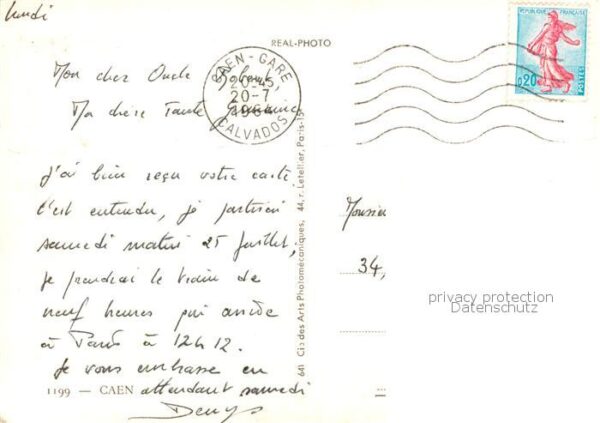 lundi
REAL-PHOTO
REPUBLIQUE FRANÇAISE
0,20
POSTES
CAEN - GARE
20-45
20-7
1964
CALVADOS
Mon cher Oncle
Ma chère Tante
J'ai bien reçu votre carte.
C'est entendu, je partirai
samedi matin 25 juillet,
je prendrai le train de
neuf heures qui arrive
à Paris à 12h12.
Je vous embrasse en
attendant samedi
Denys
1199 — CAEN
641 Cie des Arts Photomécaniques, 44, r. Letellier, Paris-15
Monsieur
34,
privacy protection
Datenschutz